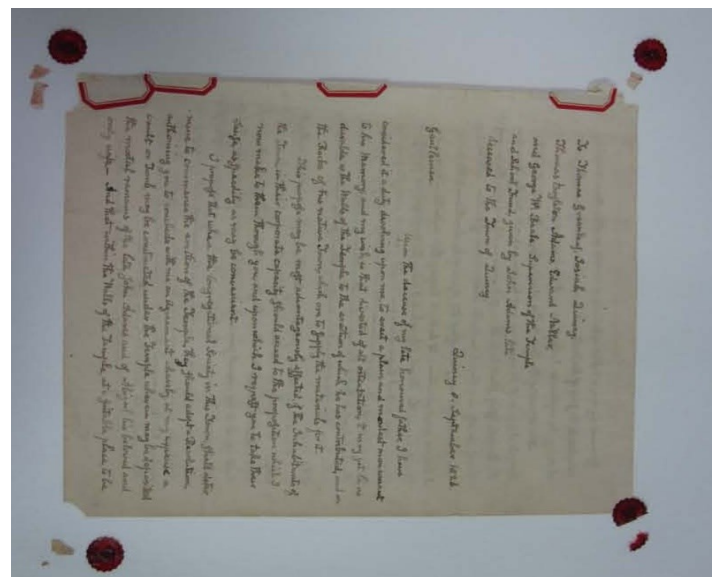 To Thomas Greenleaf, Josiah Quincy,
Thomas Boylston Adams, Edward Miller,
and George W. Beale Supervisors of the Temple
and School Fund, given by John Adams late
deceased to the Town of Quincy
Quincy 8. September 1826
Gentlemen
Upon the decease of my late honoured father I have
considered it a duty devolving upon me, to erect a plain and modest monument
to his Memory, and my wish is that divested of all ostentation, it may yet be as
durable as the Walls of the Temple to the erection of which he has contributed, and as
the Rocks of his native Town, which are to supply the materials for it.
This purpose may be most advantageously effected if the Inhabitants of
the Town, in their corporate capacity should accede to the proposition which I
now make to them through you, and upon which I request you to take their
sense as speedily as may be convenient.
I propose that when the Congregational Society in this Town, shall deter
mine to commence the erection of the Temple, they should adopt a Resolution
authorizing you to conclude with me an Agreement whereby at my expense a
vault or Tomb may be constructed under the Temple wherein may be deposited
the mortal remains of the late John Adams and of Abigail his beloved and
only wife— And that within the Walls of the Temple, at a suitable place to be